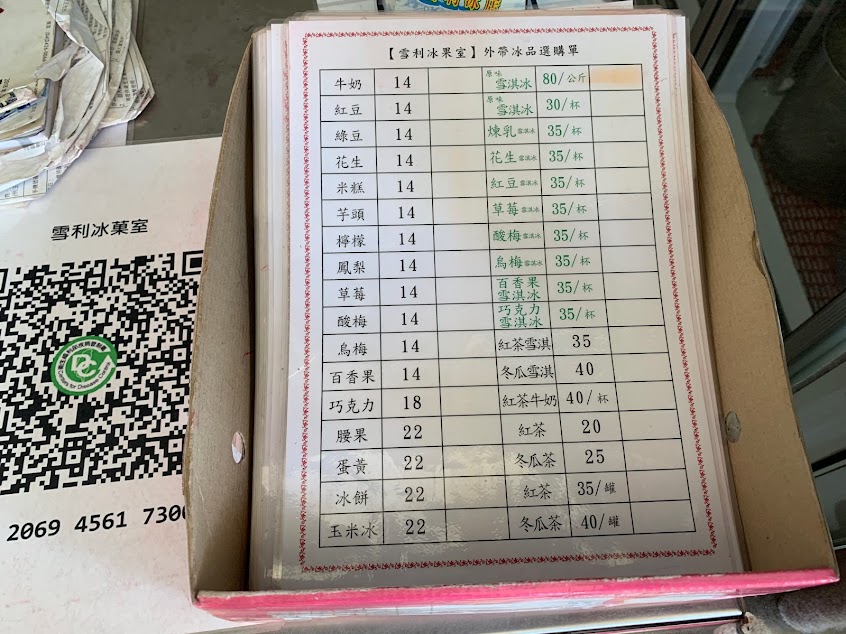 【雪利冰果室】外帶冰品選購單
牛奶 14 原味雪淇冰 80/公斤
紅豆 14 原味雪淇冰 30/杯
綠豆 14 煉乳雪淇冰 35/杯
花生 14 花生雪淇冰 35/杯
米糕 14 紅豆雪淇冰 35/杯
芋頭 14 草莓雪淇冰 35/杯
檸檬 14 酸梅雪淇冰 35/杯
鳳梨 14 烏梅雪淇冰 35/杯
草莓 14 百香果雪淇冰 35/杯
酸梅 14 巧克力雪淇冰 35/杯
烏梅 14 紅茶雪淇 35
百香果 14 冬瓜雪淇 40
巧克力 18 紅茶牛奶 40/杯
腰果 22 紅茶 20
蛋黃 22 冬瓜茶 25
冰餅 22 紅茶 35/罐
玉米冰 22 冬瓜茶 40/罐
雪利冰菓室
2069 4561 730